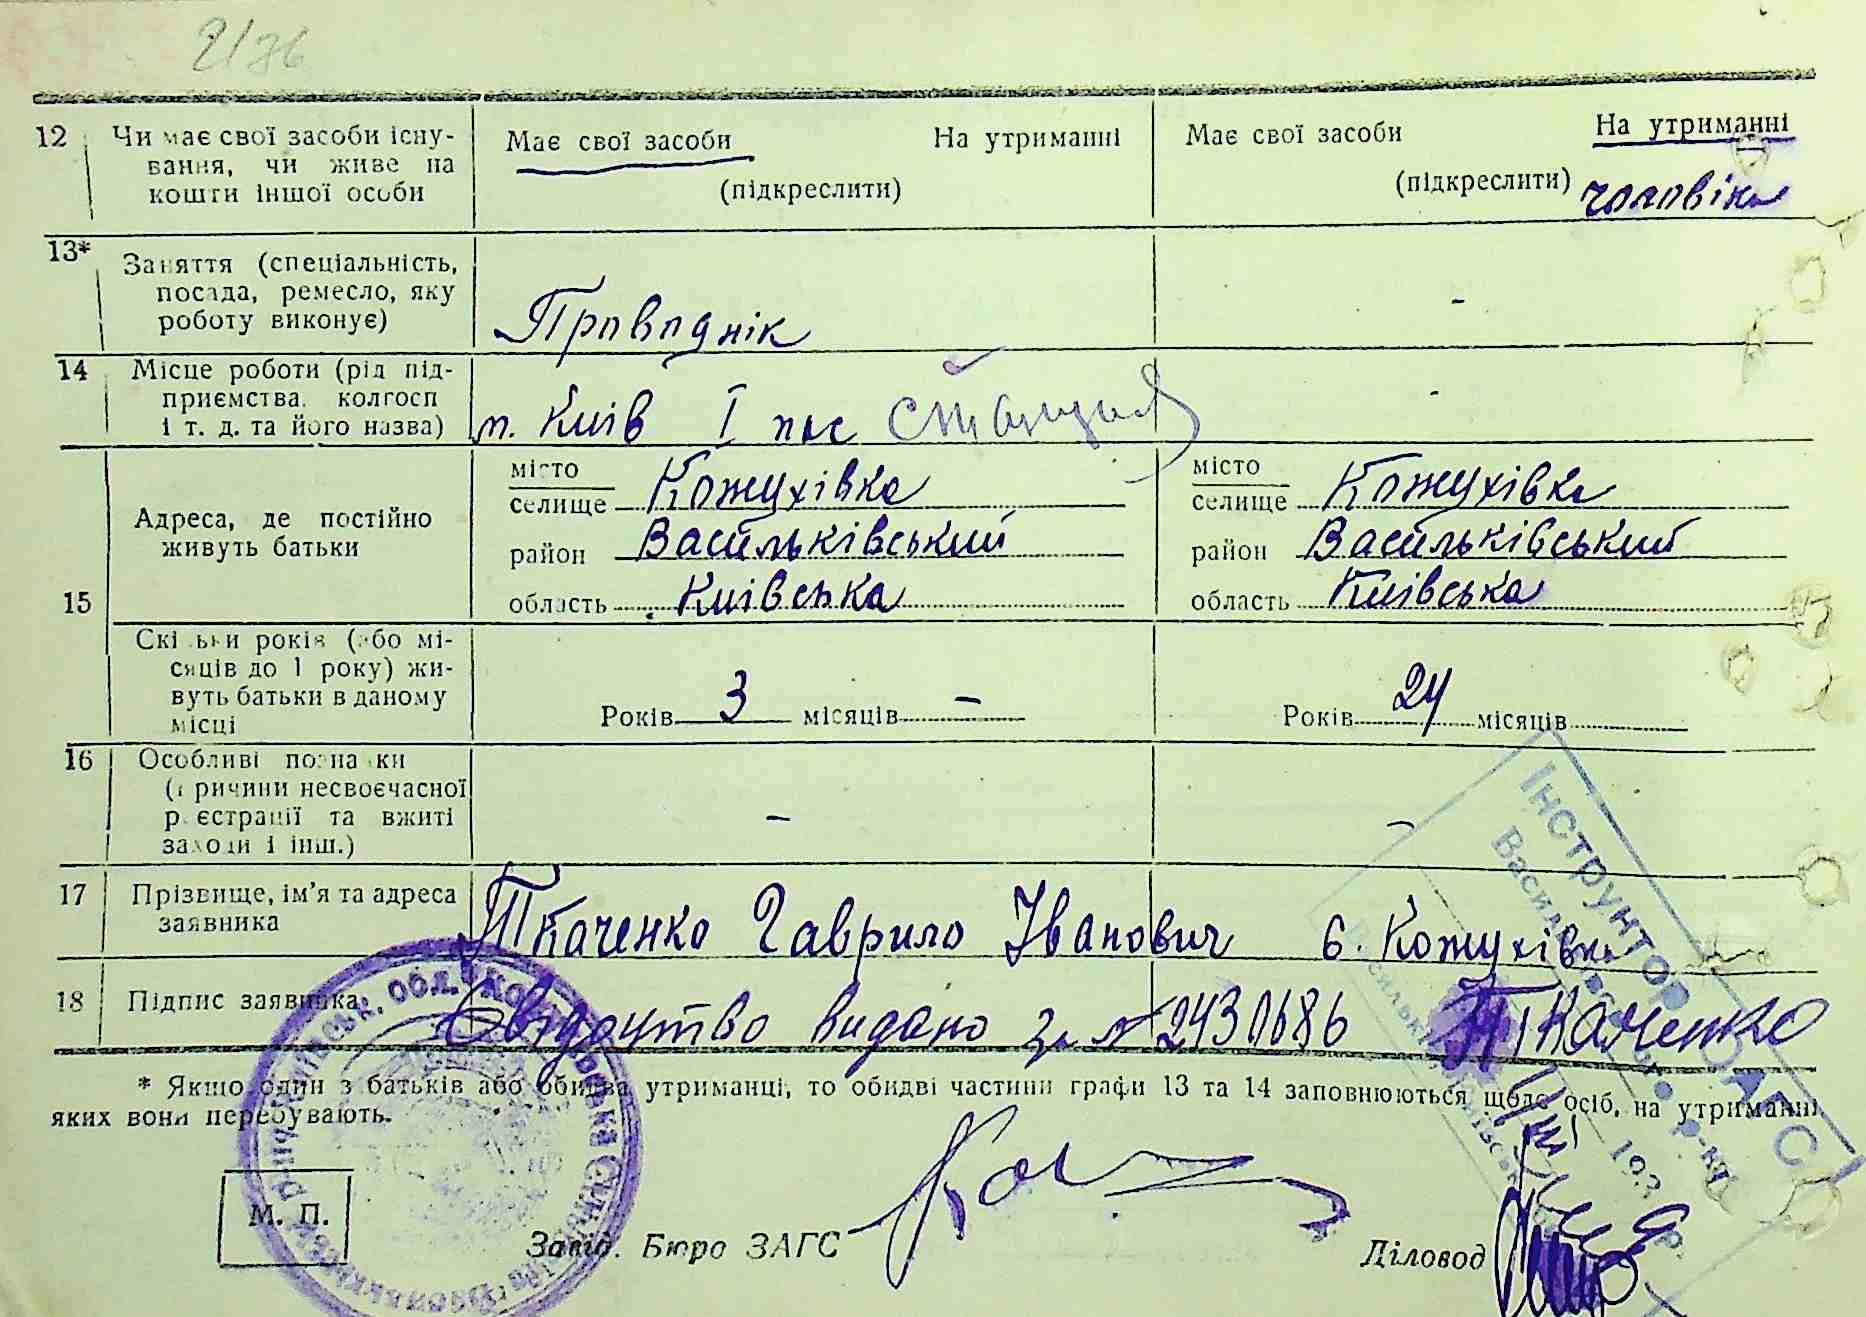 2/36
12 Чи має свої засоби існування, чи живе на кошти іншої особи
Має свої засоби На утриманні
(підкреслити)
Має свої засоби На утриманні
(підкреслити) чоловіка
13* Заняття (спеціальність,
посада, ремесло, яку
роботу виконує)
Проводнік
-
14 Місце роботи (рід під-
приємства, колгосп
і т. д. та його назва)
м. Київ І пос станция
-
15
Адреса, де постійно
живуть батьки
місто
селище Кожухівка
район Васильківський
область Київська
місто
селище Кожухівка
район Васильківський
область Київська
Скільки років (або мі-
сяців до 1 року) жи-
вуть батьки в даному
місці
Років 3 місяців –
Років 24 місяців
16 Особливі познаки
(причини несвоєчасної
реєстрації та вжиті
заходи і інш.)
–
–
17 Прізвище, ім'я та адреса
заявника
Ткаченко Гаврило Іванович с. Кожухівка
18 Підпис заявника
Свідоцтво видано за № 2430686 Ткаченко
* Якщо один з батьків або обидва утриманці, то обидві частини графи 13 та 14 заповнюються щодо осіб, на утриманні
яких вони перебувають.
М. П.
Завід. Бюро ЗАГС
Діловод
Інструктор ЗАГС